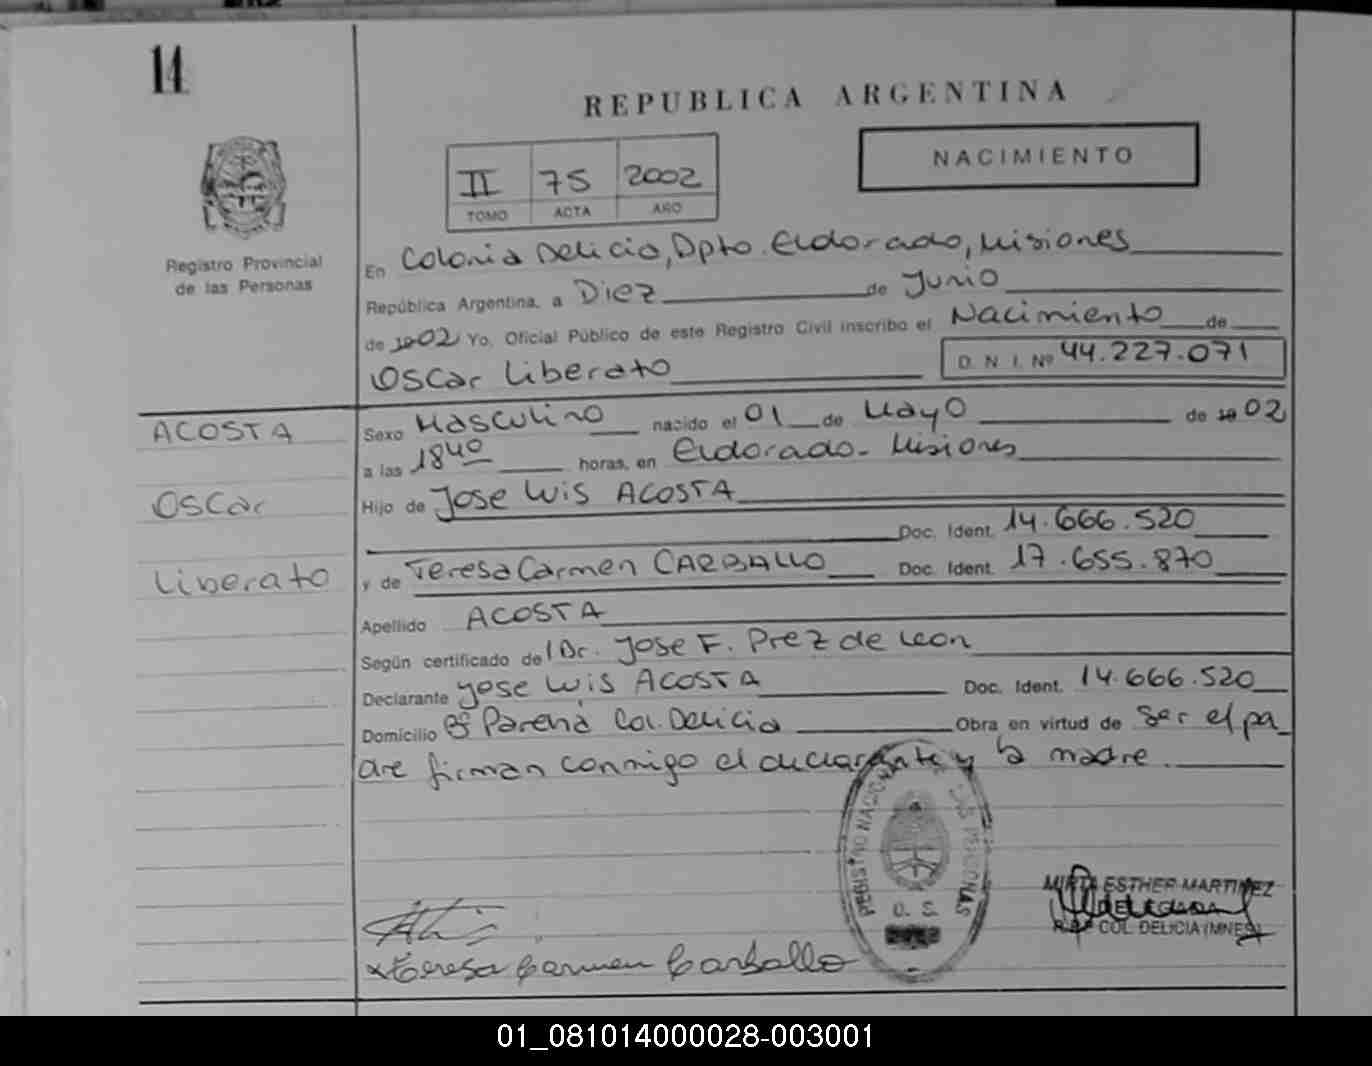 14
REPUBLICA ARGENTINA
NACIMIENTO
II 75 2002
TOMO ACTA AÑO
Registro Provincial
de las Personas
En Colonia Delicia, Dpto. Eldorado, Misiones
República Argentina, a Diez de Junio
de 1902 Yo, Oficial Público de este Registro Civil inscribo el Nacimiento de
Oscar Liberato D. N. I. Nº 44.227.071
ACOSTA
Oscar
Liberato
Sexo Masculino nacido el 01 de Mayo de 1902
a las 18⁴⁰ horas, en Eldorado - Misiones
Hijo de Jose Luis ACOSTA
Doc. Ident. 14.666.520
y de Teresa Carmen CARBALLO Doc. Ident. 17.655.870
Apellido ACOSTA
Según certificado del Dr. Jose F. Prez de Leon
Declarante Jose Luis ACOSTA Doc. Ident. 14.666.520
Domicilio Bº Parená Col. Delicia Obra en virtud de Ser el pa
dre firman conmigo el declarante y la madre.
REGISTRO NACIONAL DE LAS PERSONAS
O. S.
MIRTA ESTHER MARTINEZ
DELEGADA
R.P.P. COL. DELICIA (MNES)
Teresa Carmen Carballo
01_081014000028-003001